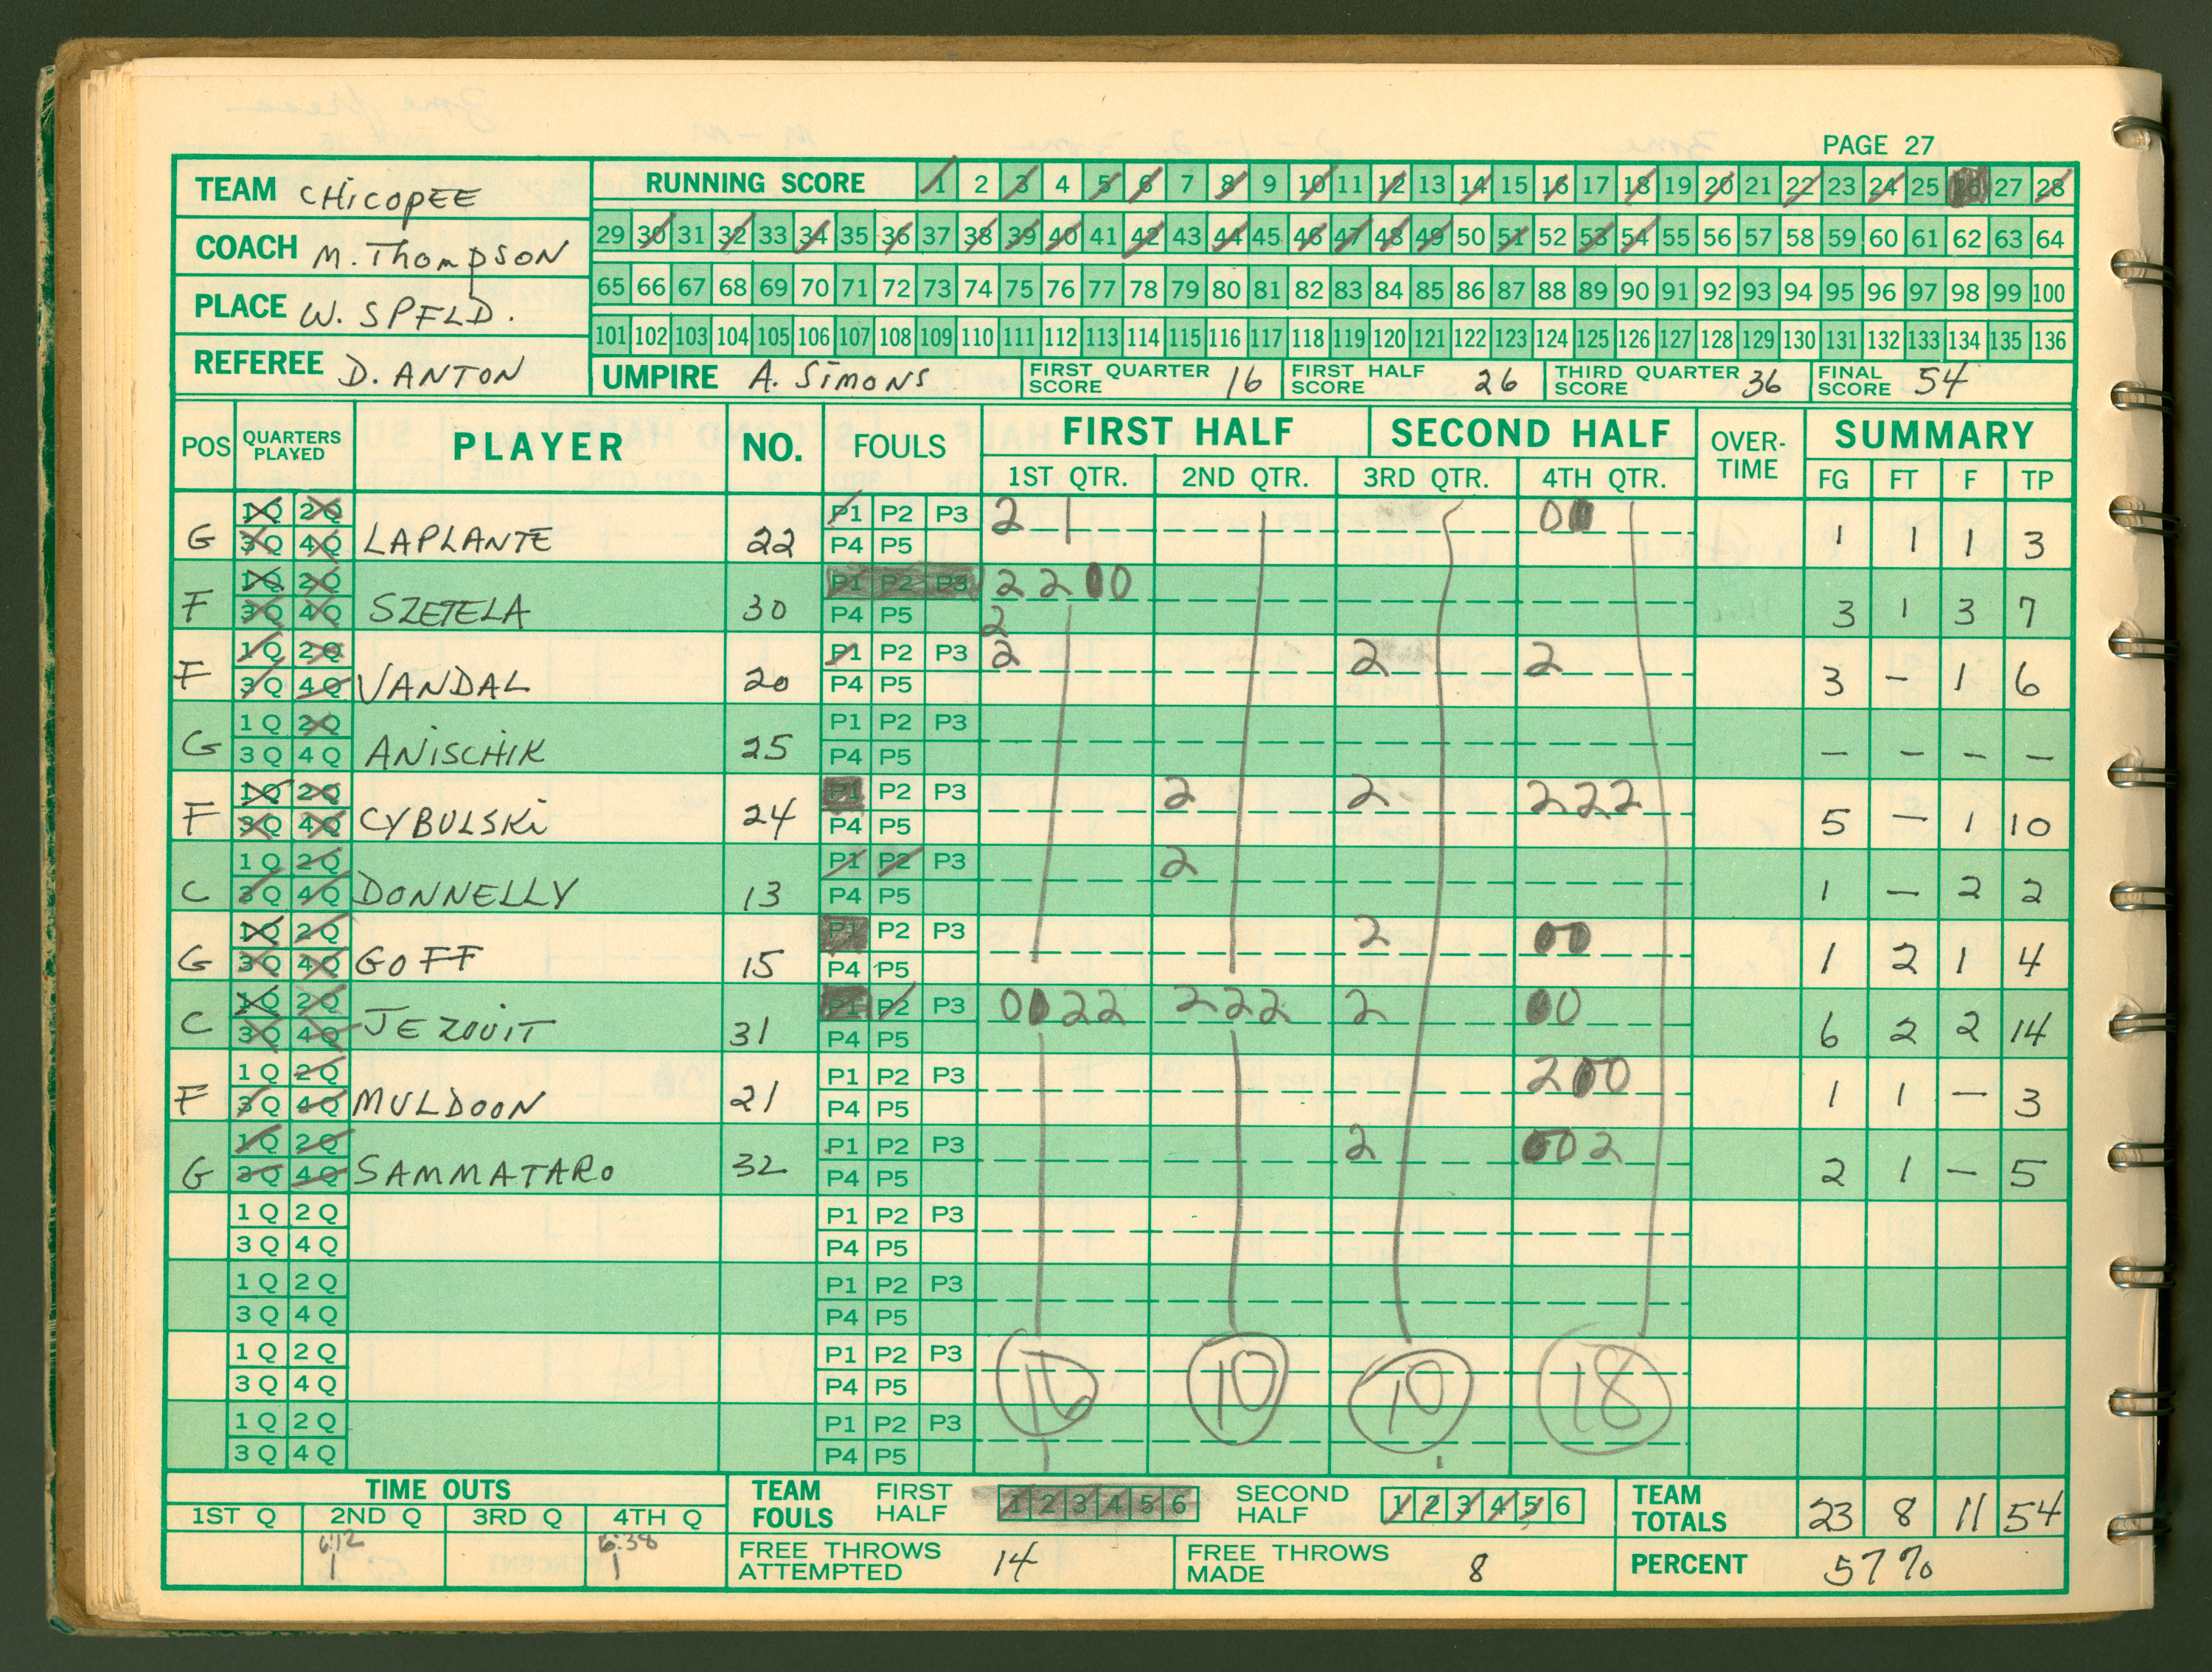 PAGE 27
TEAM CHICOPEE
RUNNING SCORE 1 2 3 4 5 6 7 8 9 10 11 12 13 14 15 16 17 18 19 20 21 22 23 24 25 26 27 28
COACH M. THOMPSON
29 30 31 32 33 34 35 36 37 38 39 40 41 42 43 44 45 46 47 48 49 50 51 52 53 54 55 56 57 58 59 60 61 62 63 64
PLACE W. SPFLD.
65 66 67 68 69 70 71 72 73 74 75 76 77 78 79 80 81 82 83 84 85 86 87 88 89 90 91 92 93 94 95 96 97 98 99 100
101 102 103 104 105 106 107 108 109 110 111 112 113 114 115 116 117 118 119 120 121 122 123 124 125 126 127 128 129 130 131 132 133 134 135 136
REFEREE D. ANTON
UMPIRE A. SIMONS FIRST QUARTER SCORE 16 FIRST HALF SCORE 26 THIRD QUARTER SCORE 36 FINAL SCORE 54
POS QUARTERS PLAYED PLAYER NO. FOULS FIRST HALF SECOND HALF OVER-TIME SUMMARY
1ST QTR. 2ND QTR. 3RD QTR. 4TH QTR. FG FT F TP
1Q 2Q P1 P2 P3 2 1 0 0
G 3Q 4Q LAPLANTE 22 P4 P5 1 1 1 3
1Q 2Q P1 P2 P3 2 2 0 0
F 3Q 4Q SZETELA 30 P4 P5 2 3 1 3 7
1Q 2Q P1 P2 P3 2 2 2
F 3Q 4Q VANDAL 20 P4 P5 3 - 1 6
1Q 2Q P1 P2 P3
G 3Q 4Q ANISCHIK 25 P4 P5 - - - -
1Q 2Q P1 P2 P3 2 2 2 2 2
F 3Q 4Q CYBULSKI 24 P4 P5 5 - 1 10
1Q 2Q P1 P2 P3 2
C 3Q 4Q DONNELLY 13 P4 P5 1 - 2 2
1Q 2Q P1 P2 P3 2 0 0
G 3Q 4Q GOFF 15 P4 P5 1 2 1 4
1Q 2Q P1 P2 P3 0 0 2 2 2 2 2 2 0 0
C 3Q 4Q JEZOUIT 31 P4 P5 6 2 2 14
1Q 2Q P1 P2 P3 2 0 0
F 3Q 4Q MULDOON 21 P4 P5 1 1 - 3
1Q 2Q P1 P2 P3 2 0 0 2
G 3Q 4Q SAMMATARO 32 P4 P5 2 1 - 5
1Q 2Q P1 P2 P3
3Q 4Q P4 P5
1Q 2Q P1 P2 P3
3Q 4Q P4 P5
1Q 2Q P1 P2 P3
3Q 4Q P4 P5
16 10 10 18
1Q 2Q P1 P2 P3
3Q 4Q P4 P5
TIME OUTS
1ST Q 2ND Q 3RD Q 4TH Q
6:12 6:38
1 1
TEAM FOULS FIRST HALF 1 2 3 4 5 6 SECOND HALF 1 2 3 4 5 6 TEAM TOTALS 23 8 11 54
FREE THROWS ATTEMPTED 14 FREE THROWS MADE 8 PERCENT 57%